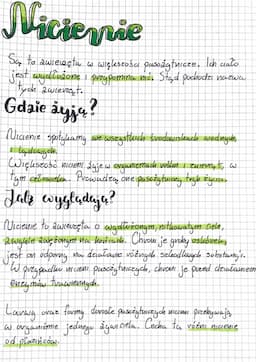 Nicienie
Są to zwierzęta w większości pasożytnicze. Ich ciało
jest wydłużone i przypomina nić. Stąd pochodzi nazwa
tych zwierząt.
Gdzie żyją?
Nicienie spotykamy we wszystkich środowiskach wodnych,
lądowych.
Większość nicieni żyje w organizmach roślin i zwierząt, w
tym człowieka. Prowadzą one pasożytniczy tryb życia.
Jak wyglądają?
Nicienie to zwierzęta o wydłużonym, nitkowatym ciele,
zwykle zwężonym na końcach. Chroni je gruby oskórek,
jest on odporny na działanie różnych szkodliwych substancji.
W przypadku nicieni pasożytniczych, chroni je przed działaniem
enzymów trawiennych.
Larwy oraz formy dorosłe pasożytniczych nicieni przebywają
w organizmie jednego żywiciela. Cecha ta różni nicienie
od płazińców.